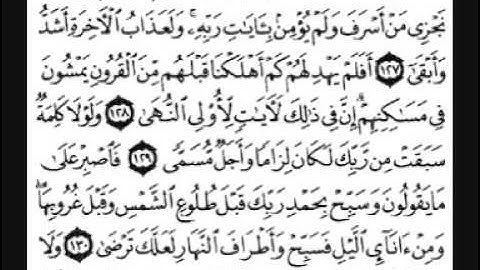 نَجْزِى مَنْ أَسْرَفَ وَلَمْ يُؤْمِنۢ بِـَٔايَٰتِ رَبِّهِۦ ۚ وَلَعَذَابُ ٱلْـَٔاخِرَةِ أَشَدُّ
وَأَبْقَىٰٓ ١٢٧ أَفَلَمْ يَهْدِ لَهُمْ كَمْ أَهْلَكْنَا قَبْلَهُم مِّنَ ٱلْقُرُونِ يَمْشُونَ
فِى مَسَٰكِنِهِمْ ۗ إِنَّ فِى ذَٰلِكَ لَـَٔايَٰتٍ لِّأُو۟لِى ٱلنُّهَىٰ ١٢٨ وَلَوْلَا كَلِمَةٌ
سَبَقَتْ مِن رَّبِّكَ لَكَانَ لِزَامًا وَأَجَلٌ مُّسَمًّى ١٢٩ فَٱصْبِرْ عَلَىٰ
مَا يَقُولُونَ وَسَبِّحْ بِحَمْدِ رَبِّكَ قَبْلَ طُلُوعِ ٱلشَّمْسِ وَقَبْلَ غُرُوبِهَا ۖ
وَمِنْ ءَانَآئِ ٱلَّيْلِ فَسَبِّحْ وَأَطْرَافَ ٱلنَّهَارِ لَعَلَّكَ تَرْضَىٰ ١٣٠ وَلَا